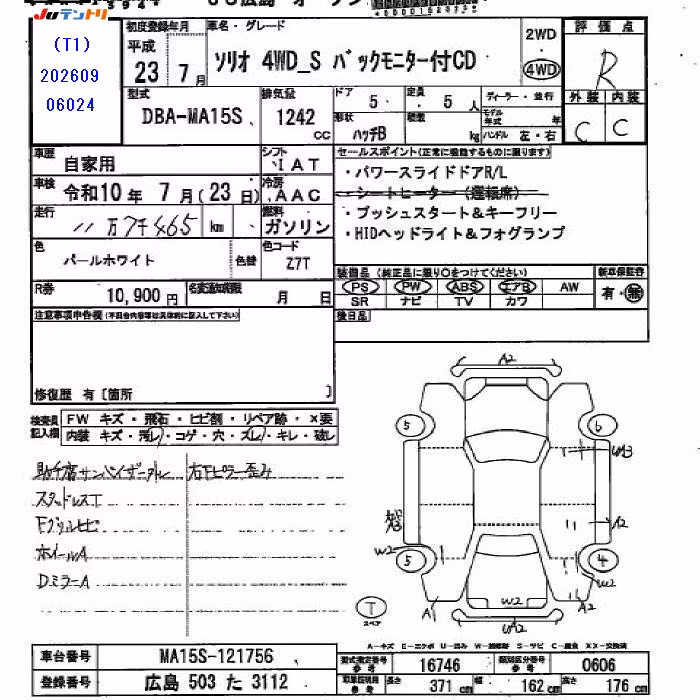 JUテントリ
初度登録年月
車名・グレード
評価点
(T1)
202609
06024
平成
23 7月
ソリオ 4WD_S バックモニター付CD
2WD
4WD
R
型式
DBA-MA15S
排気量
1242 cc
ドア 5
定員 5 人
形状 ハッチB
積載 kg
ディーラー・並行
モデル年式 年
ハンドル 左・右
外装 内装
C C
車歴 自家用
シフト IAT
セールスポイント(正常に機能するものに限ります)
車検 令和10年 7月(23日)
冷房 AAC
・パワースライドドアR/L
・シートヒーター(運転席)
・プッシュスタート&キーフリー
・HIDヘッドライト&フォグランプ
走行 11万7千465 km
燃料 ガソリン
色 パールホワイト
色替
色コード Z7T
R券 10,900円
名変通知期限 月 日
装備品(純正品に限り○をつけてください)
新車保証書
PS PW ABS エアB AW
SR ナビ TV カワ
有・無
注意事項申告欄(不具合内容等は具体的に記入して下さい)
後日品
修復歴 有〔箇所 〕
検査員記入欄
FW キズ・飛石・ヒビ割・リペア跡・×要
内装 キズ・汚レ・コゲ・穴・スレ・キレ・破レ
助手席サンバイザーダレ
右Fピラー歪み
スタッドレスT
Fグリルヒビ
ホイールA
DミラーA
A2
5
6
A2
W2
5
4
W2
A
A
W2
T
スペア
A-キズ E-エクボ U-凹み W-補修跡 S-サビ C-腐食 XX-交換済
車台番号 MA15S-121756
型式指定番号 参考 16746
類別区分番号 参考 0606
登録番号 広島 503 た 3112
長さ 371 cm
幅 162 cm
高さ 176 cm